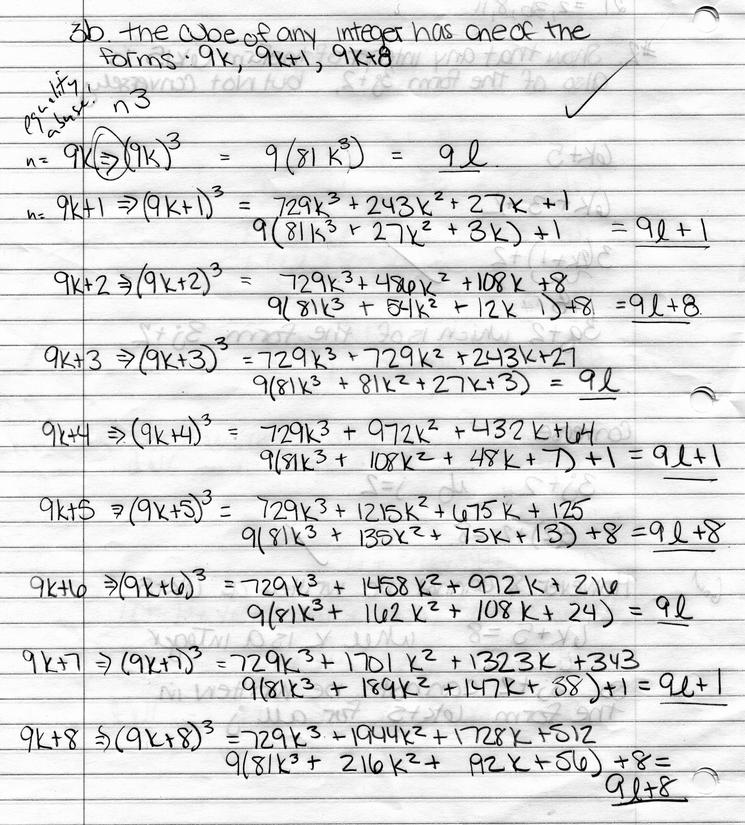 3b. the cube of any integer has one of the
forms. 9k, 9k+1, 9k+8
equality abuse!
n3
n= 9k ⇒ (9k)³ = 9(81k³) = 9l
n= 9k+1 ⇒ (9k+1)³ = 729k³ + 243k² + 27k + 1
9(81k³ + 27k² + 3k) + 1 = 9l+1
9k+2 ⇒ (9k+2)³ = 729k³ + 486k² + 108k + 8
9(81k³ + 54k² + 12k ) + 8 = 9l+8
9k+3 ⇒ (9k+3)³ = 729k³ + 729k² + 243k + 27
9(81k³ + 81k² + 27k + 3) = 9l
9k+4 ⇒ (9k+4)³ = 729k³ + 972k² + 432k + 64
9(81k³ + 108k² + 48k + 7) + 1 = 9l+1
9k+5 ⇒ (9k+5)³ = 729k³ + 1215k² + 675k + 125
9(81k³ + 135k² + 75k + 13) + 8 = 9l+8
9k+6 ⇒ (9k+6)³ = 729k³ + 1458k² + 972k + 216
9(81k³ + 162k² + 108k + 24) = 9l
9k+7 ⇒ (9k+7)³ = 729k³ + 1701k² + 1323k + 343
9(81k³ + 189k² + 147k + 38) + 1 = 9l+1
9k+8 ⇒ (9k+8)³ = 729k³ + 1944k² + 1728k + 512
9(81k³ + 216k² + 92k + 56) + 8 =
9l+8